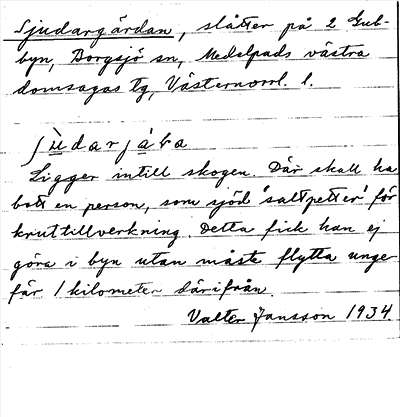 Sjudargärdan, slåtter på 2 Gub-
byn, Borgsjö sn, Medelpads västra
domsagas tg, Västernorrl. l.
ʃùdarjáṛa
Ligger intill skogen. Där skall ha
bott en person, som sjöd 'saltpetter' för
kruttillverkning. Detta fick han ej
göra i byn utan måste flytta unge
fär 1 kilometer därifrån.
Valter Jansson 1934.